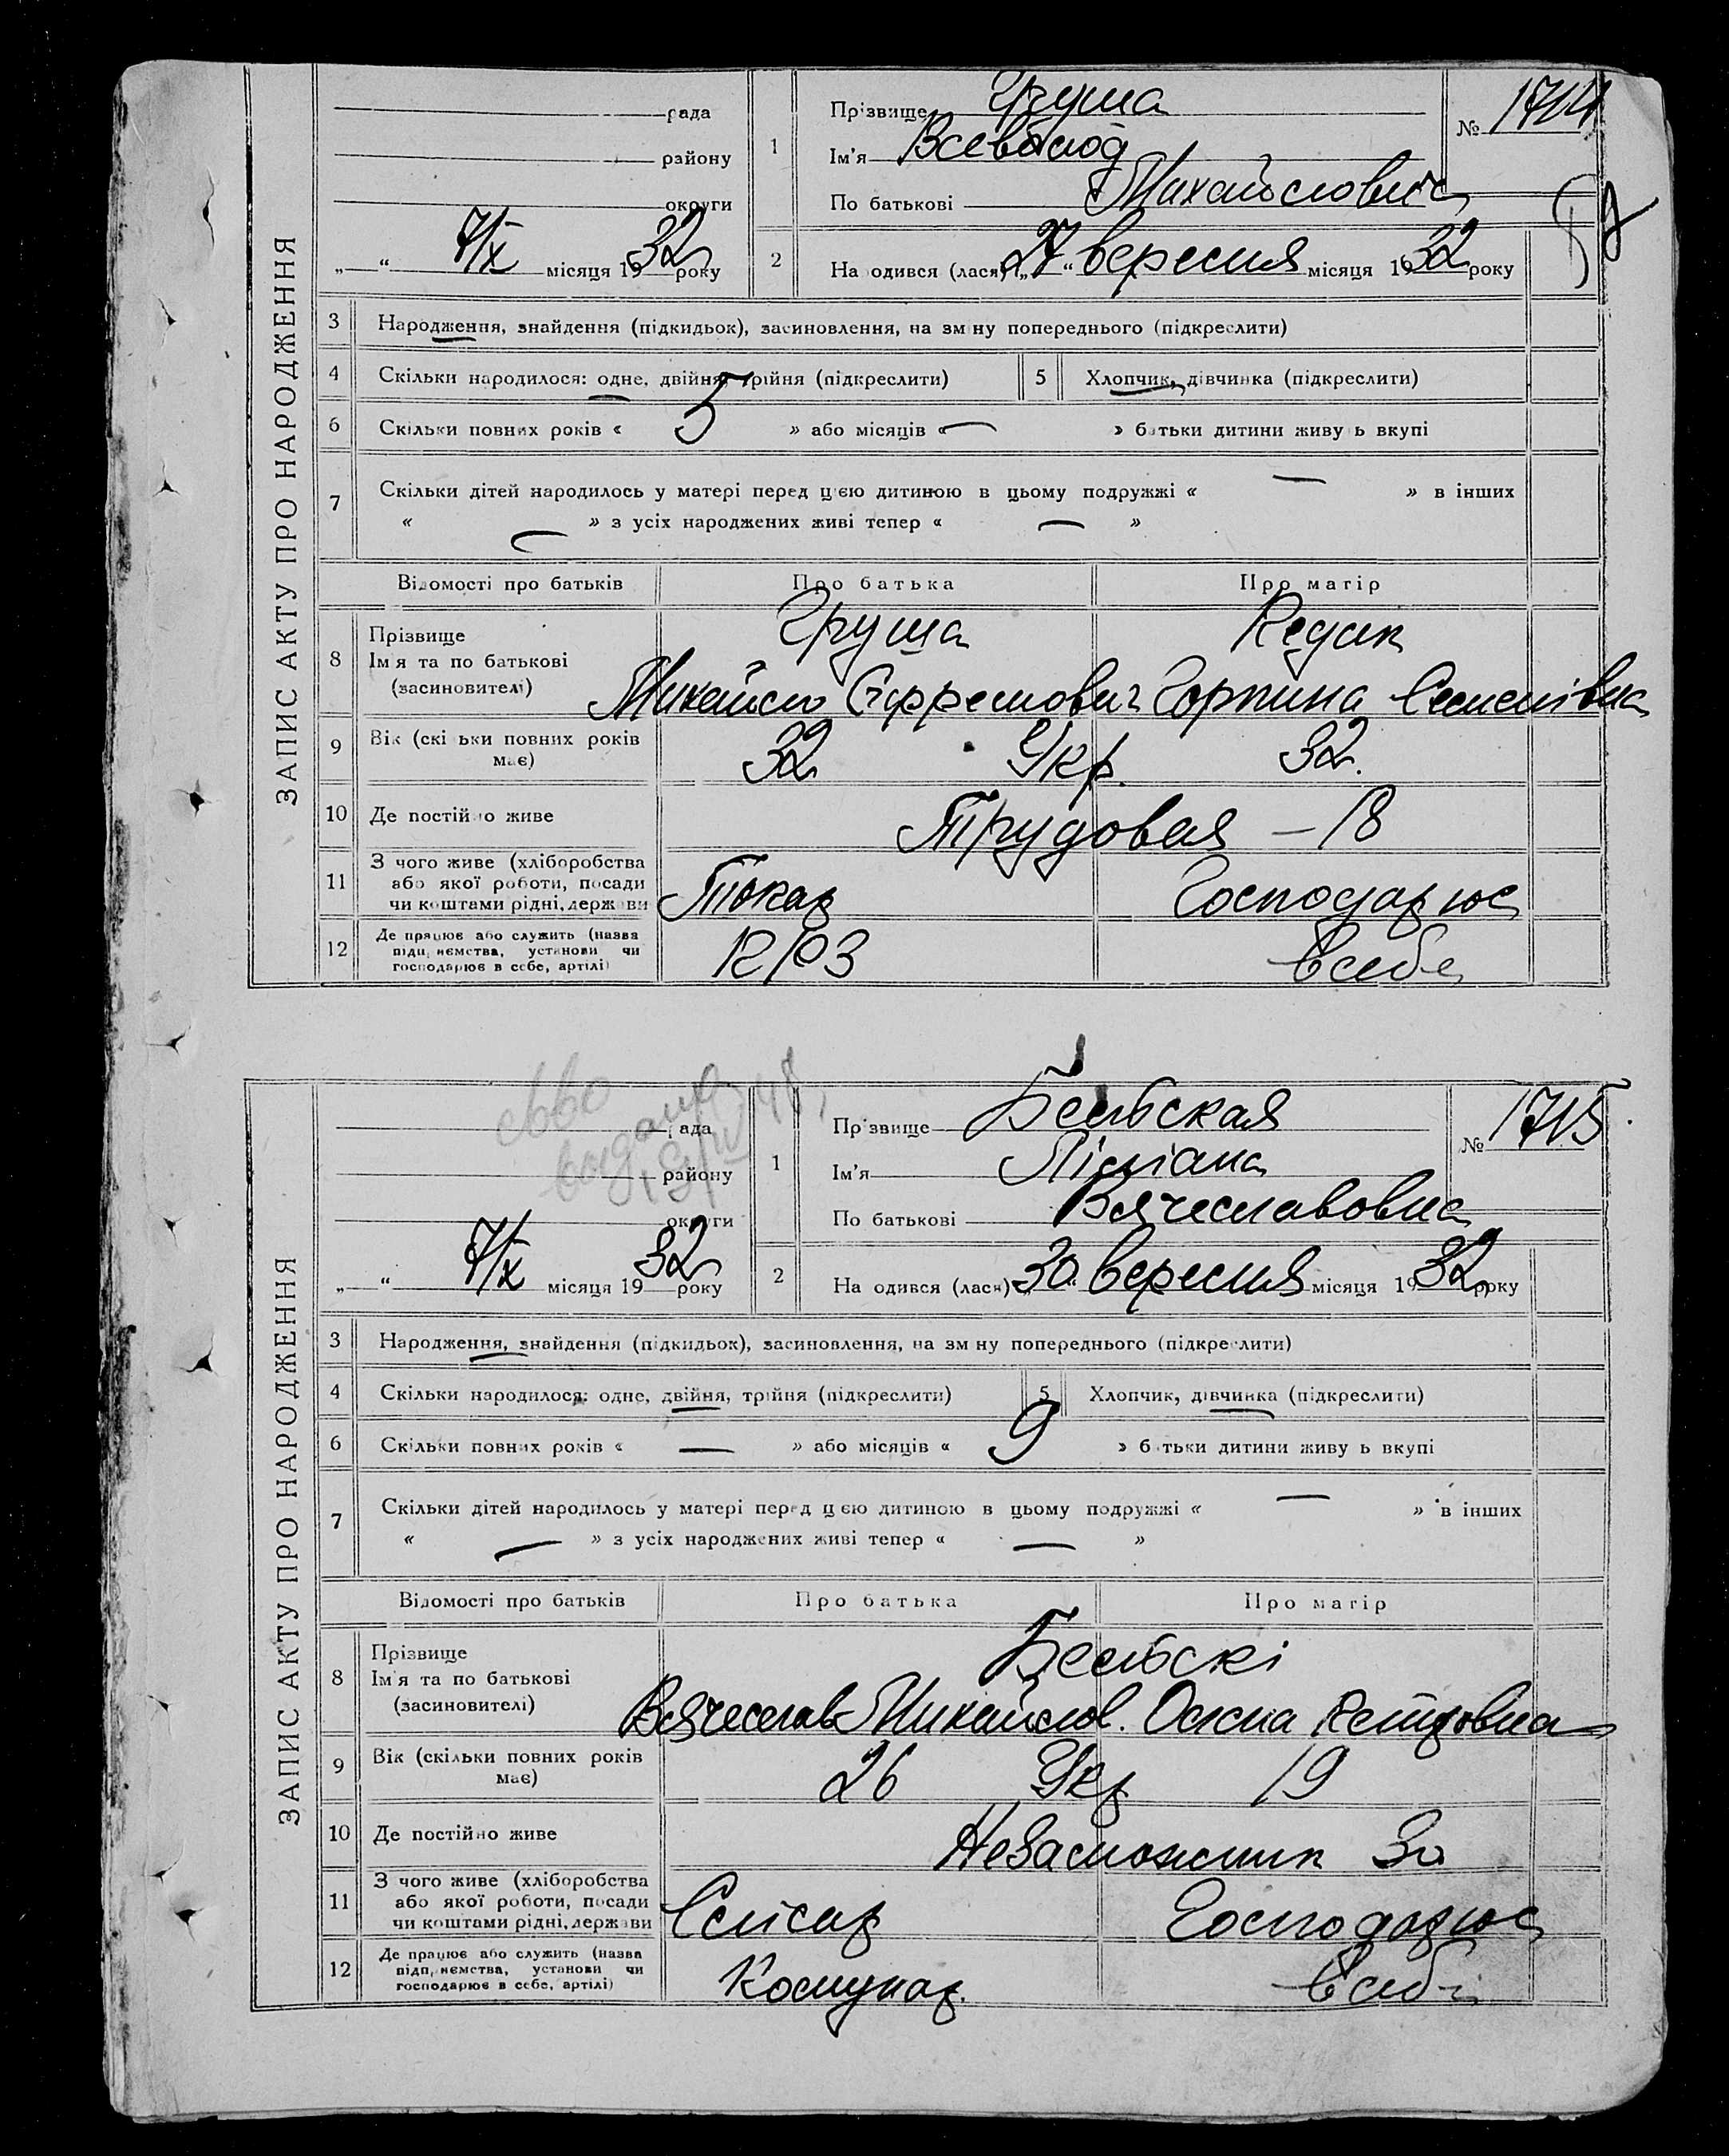 ЗАПИС АКТУ ПРО НАРОДЖЕННЯ
рада
району
округи
„ “ 7/X місяця 1932 року
1 Прізвище Груша
Ім'я Всеволод
По батькові Михайлович
№ 1714
2 На одився (лася) „27“ вересня місяця 1932 року
3 Народження, знайдення (підкидьок), засиновлення, на зм ну попереднього (підкреслити)
4 Скільки народилося: одне, двійня, трійня (підкреслити) 5 Хлопчик, дівчинка (підкреслити)
6 Скільки повних років « 5 » або місяців « — » батьки дитини живу ь вкупі
7 Скільки дітей народилось у матері перед цією дитиною в цьому подружжі « — » в інших
« — » з усіх народжених живі тепер « — »
Відомості про батьків Про батька Про матір
8 Прізвище Груша Редик
Ім'я та по батькові
(засиновителі) Михайло Єфремович Горпина Семенівна
9 Вік (скі ьки повних років має) 32 Укр. 32.
10 Де постійно живе Трудовая – 18
11 З чого живе (хліборобства
або якої роботи, посади
чи коштами рідні, держави Токар Господарює
12 Де працює або служить (назва
підп, иємства, установи чи
господарює в себе, артілі) КРЗ в себе
ЗАПИС АКТУ ПРО НАРОДЖЕННЯ
рада
району
округи
„ “ 7/X місяця 1932 року
1 Прізвище Бельская
Ім'я Ліліана
По батькові Вячеславовна
№ 1715
2 На одився (лася) „30“ вересня місяця 1932 року
3 Народження, знайдення (підкидьок), засиновлення, на зм ну попереднього (підкреслити)
4 Скільки народилося: одне, двійня, трійня (підкреслити) 5 Хлопчик, дівчинка (підкреслити)
6 Скільки повних років « — » або місяців « 9 » б тьки дитини живу ь вкупі
7 Скільки дітей народилось у матері перед цією дитиною в цьому подружжі « — » в інших
« — » з усіх народжених живі тепер « — »
Відомості про батьків Про батька Про матір
8 Прізвище Бельскі
Ім'я та по батькові
(засиновителі) Вячеслав Михайлов. Олена Петровна
9 Вік (скільки повних років має) 26 Укр 19
10 Де постійно живе Незаможник
11 З чого живе (хліборобства
або якої роботи, посади
чи коштами рідні, держави Слюсар Господарює
12 Де працює або служить (назва
підп, иємства, установи чи
господарює в себе, артілі) Комунар. в себе